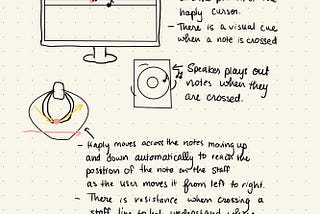 haply cursor.
- There is a visual cue
when a note is crossed
Speaker plays out
notes when they
are crossed.
- Haply moves across the notes moving up
and down automatically to reach the
position of the note on the staff
as the user moves it from left to right.
- There is resistance when crossing a